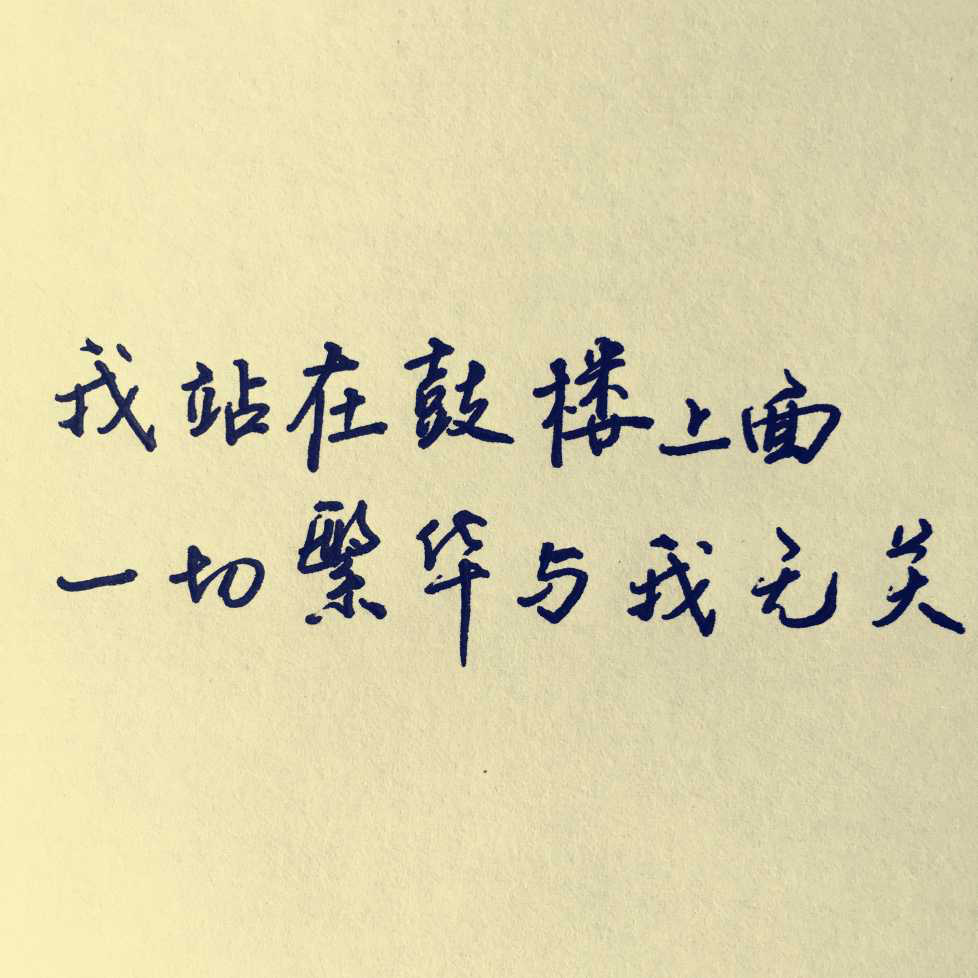 我站在鼓楼上面
一切繁华与我无关